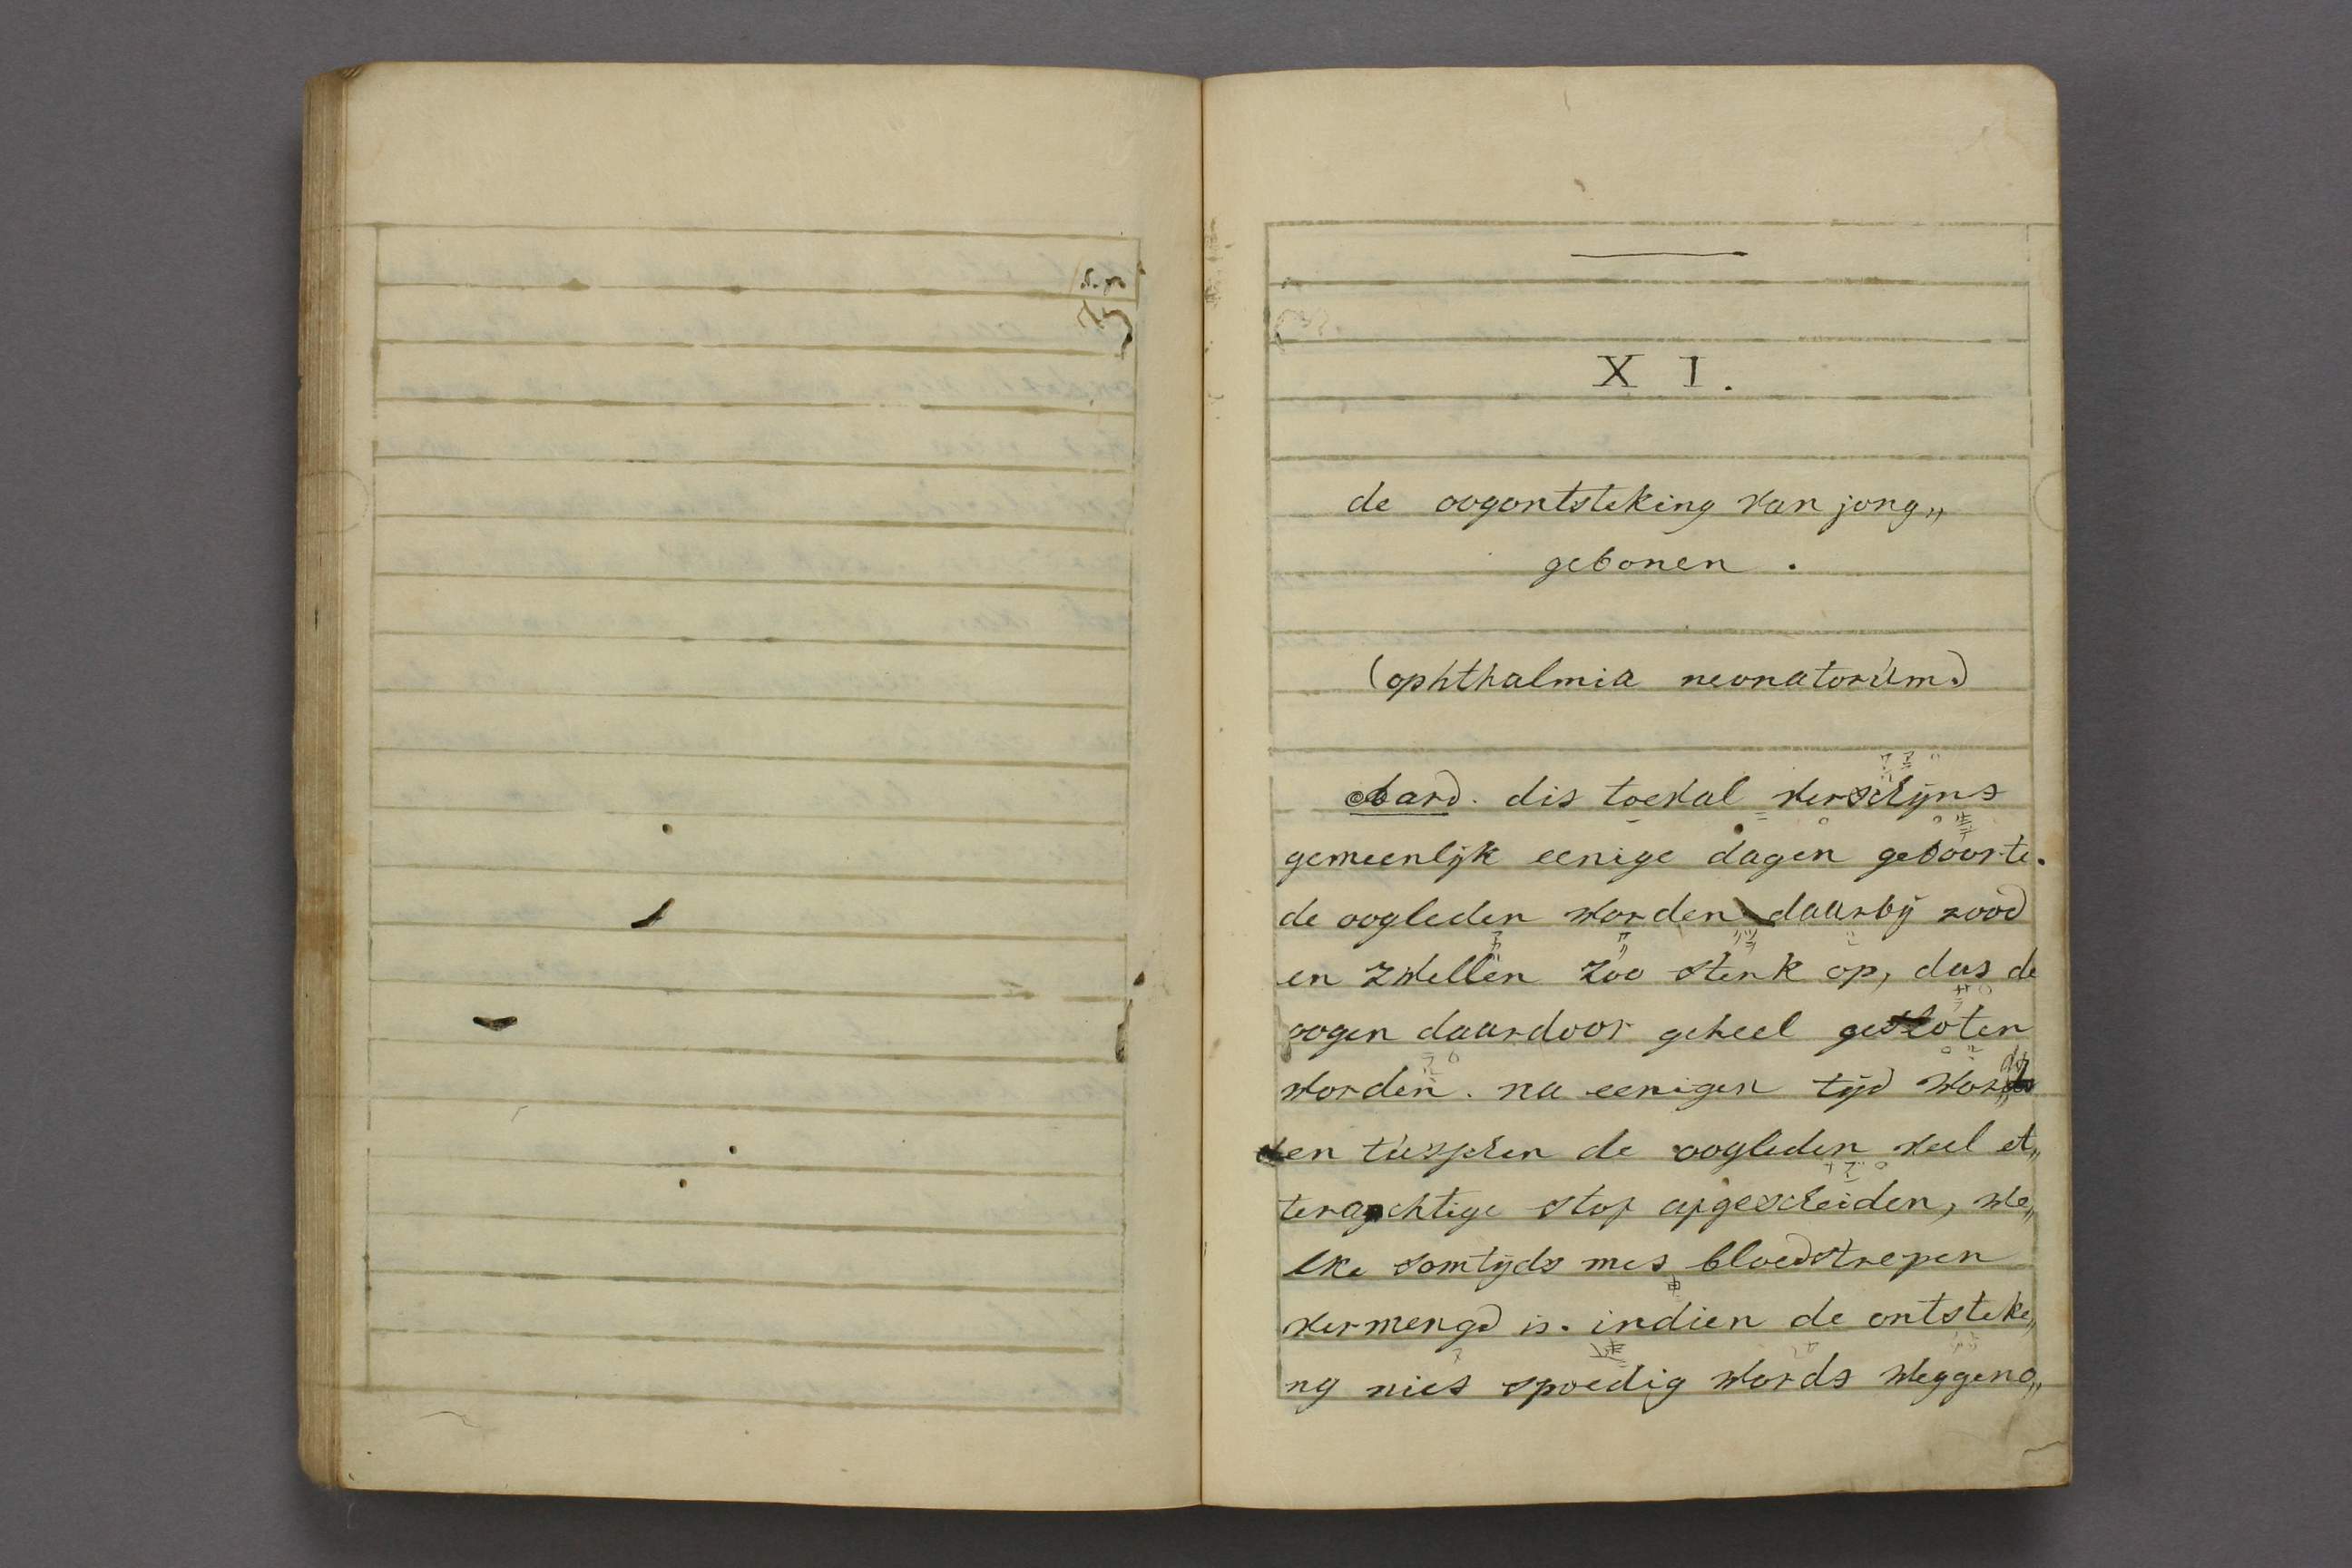 X I.
de oogontsteking van jong„
gebonen .
(ophthalmia neonatorum.)
Aard. dis toeval verschÿns
gemeenlÿk eenige dagen geboorte.
de oogleden worden daarbÿ rood
en zwellen zoo sterk op, das de
oogen daardoor geheel gesloten
worden. na eenigen tÿd wor„
den tusschen de oogleden veel et„
terachtige stof afgescheiden, we„
lke somtÿds mes bloedstrepen
vermengd is. indien de ontsteke„
ng nies spoedig words weggeno„